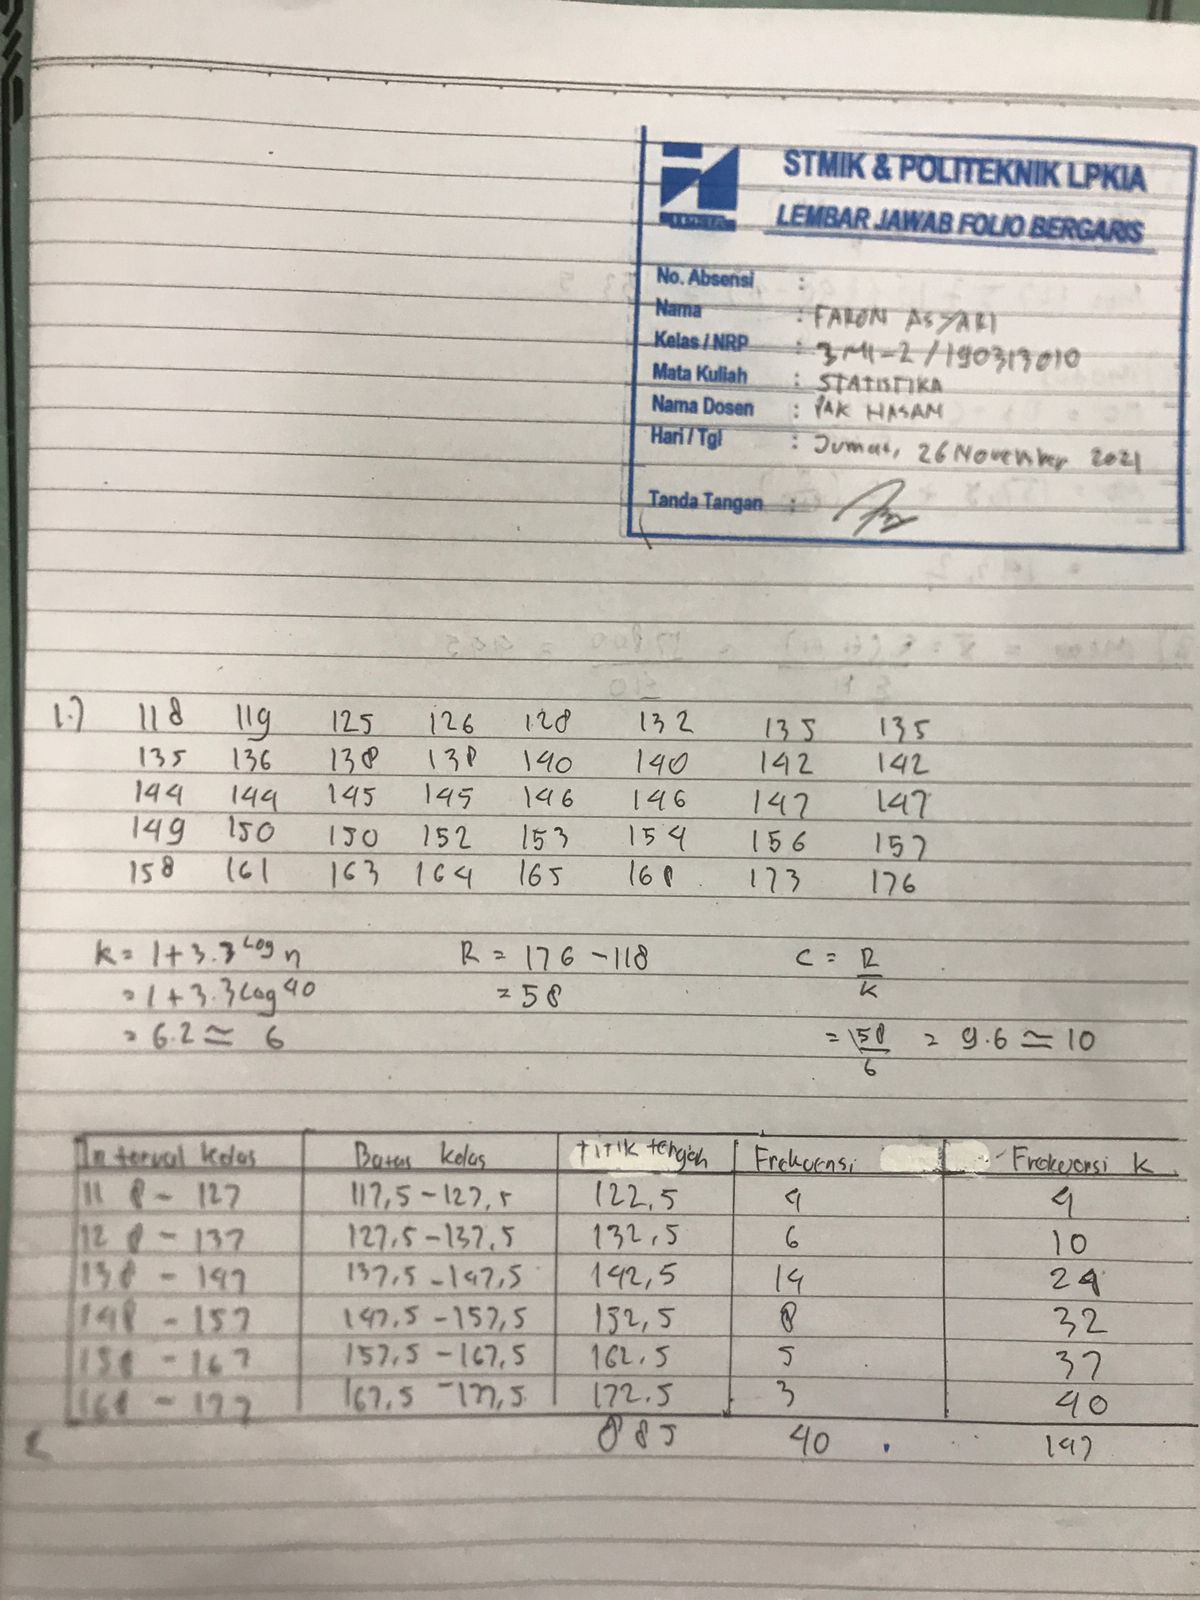 STMIK & POLITEKNIK LPKIA
LEMBAR JAWAB FOLIO BERGARIS
No. Absensi :
Nama : FARON ASYARI
Kelas / NRP : 3MI-2 / 190313010
Mata Kuliah : STATISTIKA
Nama Dosen : PAK HASAN
Hari / Tgl : Jumat, 26 November 2021
Tanda Tangan :
1.) 118 119 125 126 128 132 135 135
135 136 138 138 140 140 142 142
144 144 145 145 146 146 147 147
149 150 150 152 153 154 156 157
158 161 163 164 165 168 173 176
K = 1 + 3.3 Log n R = 176 - 118 C = R/K
= 1 + 3.3 Log 40 = 58
= 6.2 ≃ 6 = 58/6 = 9.6 ≃ 10
Interval kelas Batas kelas Titik tengah Frekuensi Frekuensi K
118 - 127 117,5 - 127,5 122,5 4 4
128 - 137 127,5 - 137,5 132,5 6 10
138 - 147 137,5 - 147,5 142,5 14 24
148 - 157 147,5 - 157,5 152,5 8 32
158 - 167 157,5 - 167,5 162.5 5 37
168 - 177 167,5 - 177,5 172.5 3 40
885 40 147